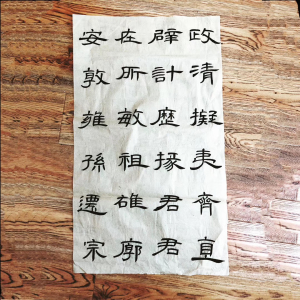 政清擬夷齊直
辟計歷掾君君
在所敏祖雄廓
安敦雍孫遷宗